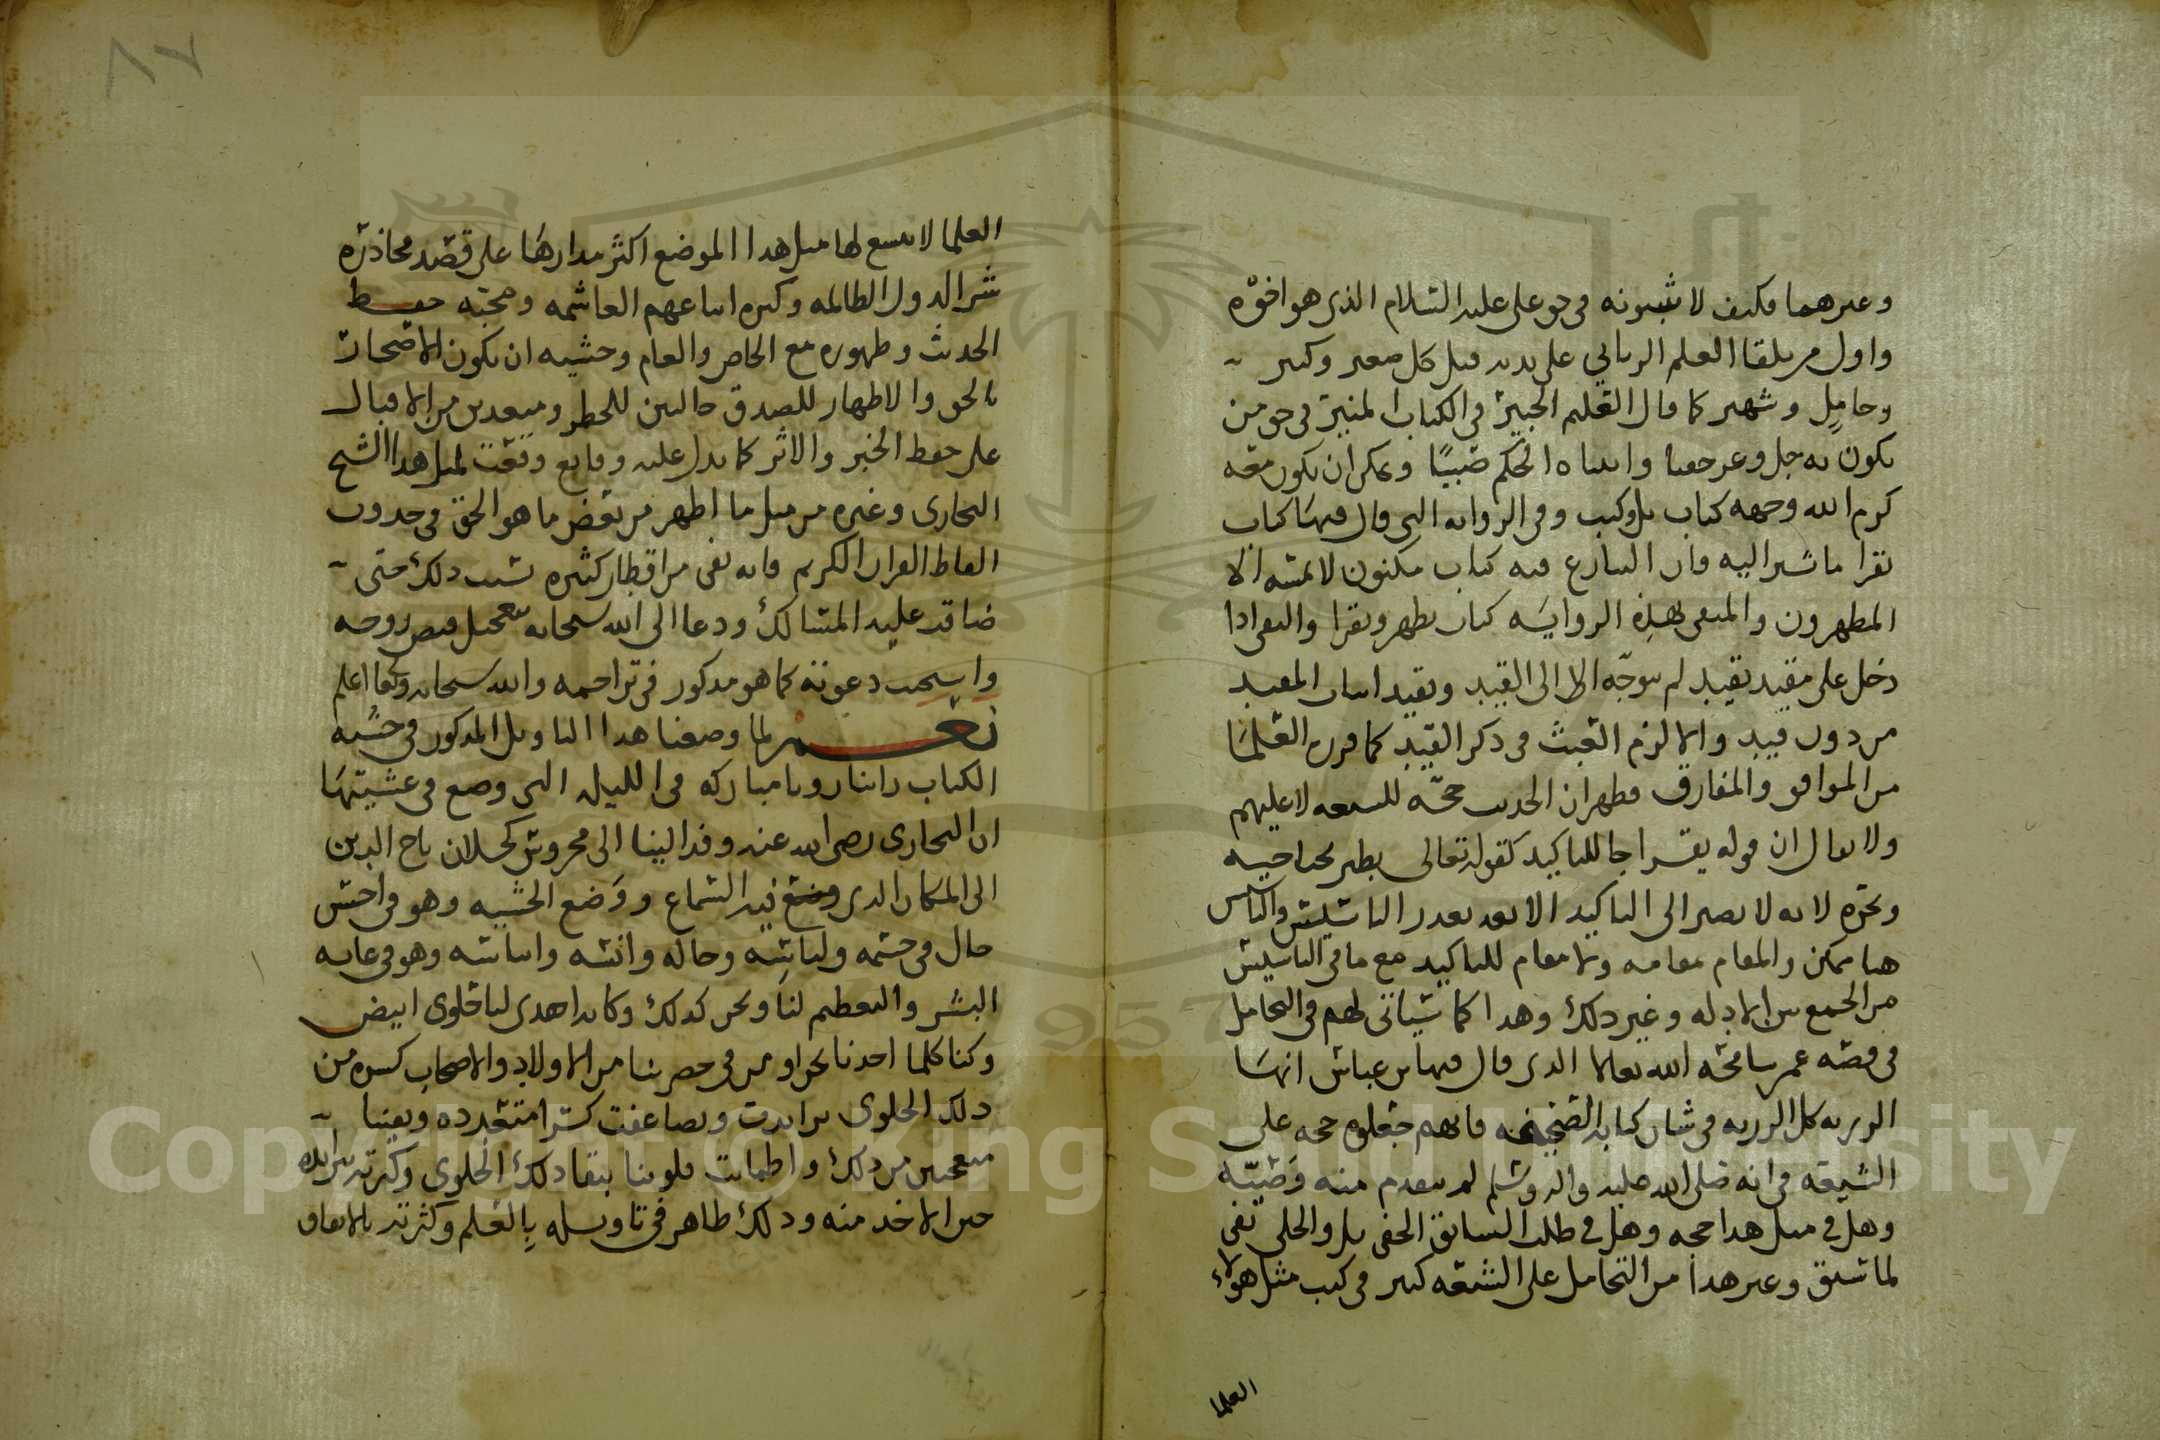 وغيرهما فكيف لا يثبتونه في حق علي عليه السلام الذي هو اخوه
واول من يلقا العلم الرباني على يديه قبل كل صغير وكبير
وخامل وشهير كما قال العليم الخبير في الكتاب المنير في حق من
يكون به جل وعز حفيا واتيناه الحكم صبيا ويمكن ان يكون معه
كرم الله وجهه كتاب بل وكتب وفي الروايه التي قال فيها كتاب
يقرا ما يشير اليه فان الشارع فيه كتاب مكنون لا يمسه الا
المطهرون والمنفي بهذه الروايه كتاب يظهر ويقرا والنفي اذا
دخل على مقيد بقيد لم يتوجه الا الى القيد ويفيد اثبات المقيد
من دون قيد والا لزم العبث في ذكر القيد كما قرره العلما
من الموافق والمفارق فظهر ان الحديث حجه للشيعه لا عليهم
ولا يقال ان قوله يقرا جا للتاكيد كقوله تعالى يطير بجناحيه
ونحوه لانه لا يصير الى التاكيد الا بعد تعذر التاسيس والتاسيس
هنا ممكن والمقام مقامه ولا مقام للتاكيد مع ما في التاسيس
من الجمع بين الادله وغير ذلك وهذا كما سياتي لهم في التحامل
في قصه عمر سامحه الله تعالى الذي قال فيها بن عباس انها
الرزيه كل الرزيه في شان كتابه الصحيفه فانهم جعلوه حجه على
الشيعه في انه صلى الله عليه واله وسلم لم يتقدم منه وصيه
وهل في مثل هذا حجه وهل في طلب السابق الخفي بل والجلي نفي
لما سبق وغير هذا من التحامل على الشيعه كثير في كتب مثل هولاء
العلما
٨٧
العلما لا يتسع لها مثل هذا الموضع اكثر مدارها على قصد محاذره
شر الدول الظالمه وكثره اتباعهم الغاشمه ومحبه حفظ
الحديث وظهوره مع الخاص والعام وخشيه ان يكون الاصحاب
بالحق والاظهار للصدق جالبين للخطر ومبعدين من الاقبال
على حفظ الخبر والاثر كما يدل عليه وقايع وقعت لمثل هذا الشيخ
البخاري وغيره من مثل ما اظهر من بعض ما هو الحق في حدوث
الفاظ القران الكريم فانه نفي من اقطار كثيره بسبب ذلك حتى
ضاقت عليه المسالك ودعا الى الله سبحانه بتعجيل قبض روحه
واستجيب دعوته كما هو مذكور في تراجمه والله سبحانه وتعالى اعلم
نعم لما وضعنا هذا التاويل المذكور في حشيه
الكتاب راينا رويا مباركه في الليله التي وضع في عشيتها
ان البخاري رضي الله عنه وفد الينا الى محروس كحلان تاج الدين
الى المكان الذي وضع فيه السماع ووضع الحشيه وهو في احسن
حال في جسمه ولباسه وحاله وانسه وابتسامه وهو في غايه
البشر والتعظيم لنا ونحن كذلك وكانه اهدى لنا حلوى ابيض
وكنا كلما اخذنا نحن او من في حضرتنا من الاولاد والاصحاب كسره من
ذلك الحلوى تزايدت وتضاعفت كسرا متعدده وبقينا
متعجبين من ذلك واطمانت قلوبنا ببقا ذلك الحلوى وكثرته بتزايده
حين الاخذ منه وذلك ظاهر في تاويله بالعلم وكثرته بالانفاق